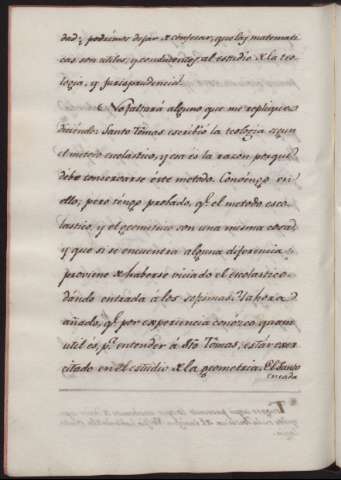 dad; podremos dejar de confesar, que las matemati
cas son utiles, y conducentes al estudio de la teo
logia, y jurisprudencia?
No faltará alguno que me replique
diciendo: Santo Tómas escribio la teologia segun
el metodo escolastico, y esa és la razon porqué
debe conservarse éste metodo. Convengo en
ello; pero téngo probado, qe. el metodo esco
lastico, y el geometrico son una misma cosa;
y que si se encuentra alguna diferencia
proviene de haberse viciado el escolastico
dándo entrada á los sofismas. Y ahora
añado, qe. por experiencia conózco quan
util és, pa. entender á Sto. Tómas, estár exer
citado en el estudio de la geometria. El Santo